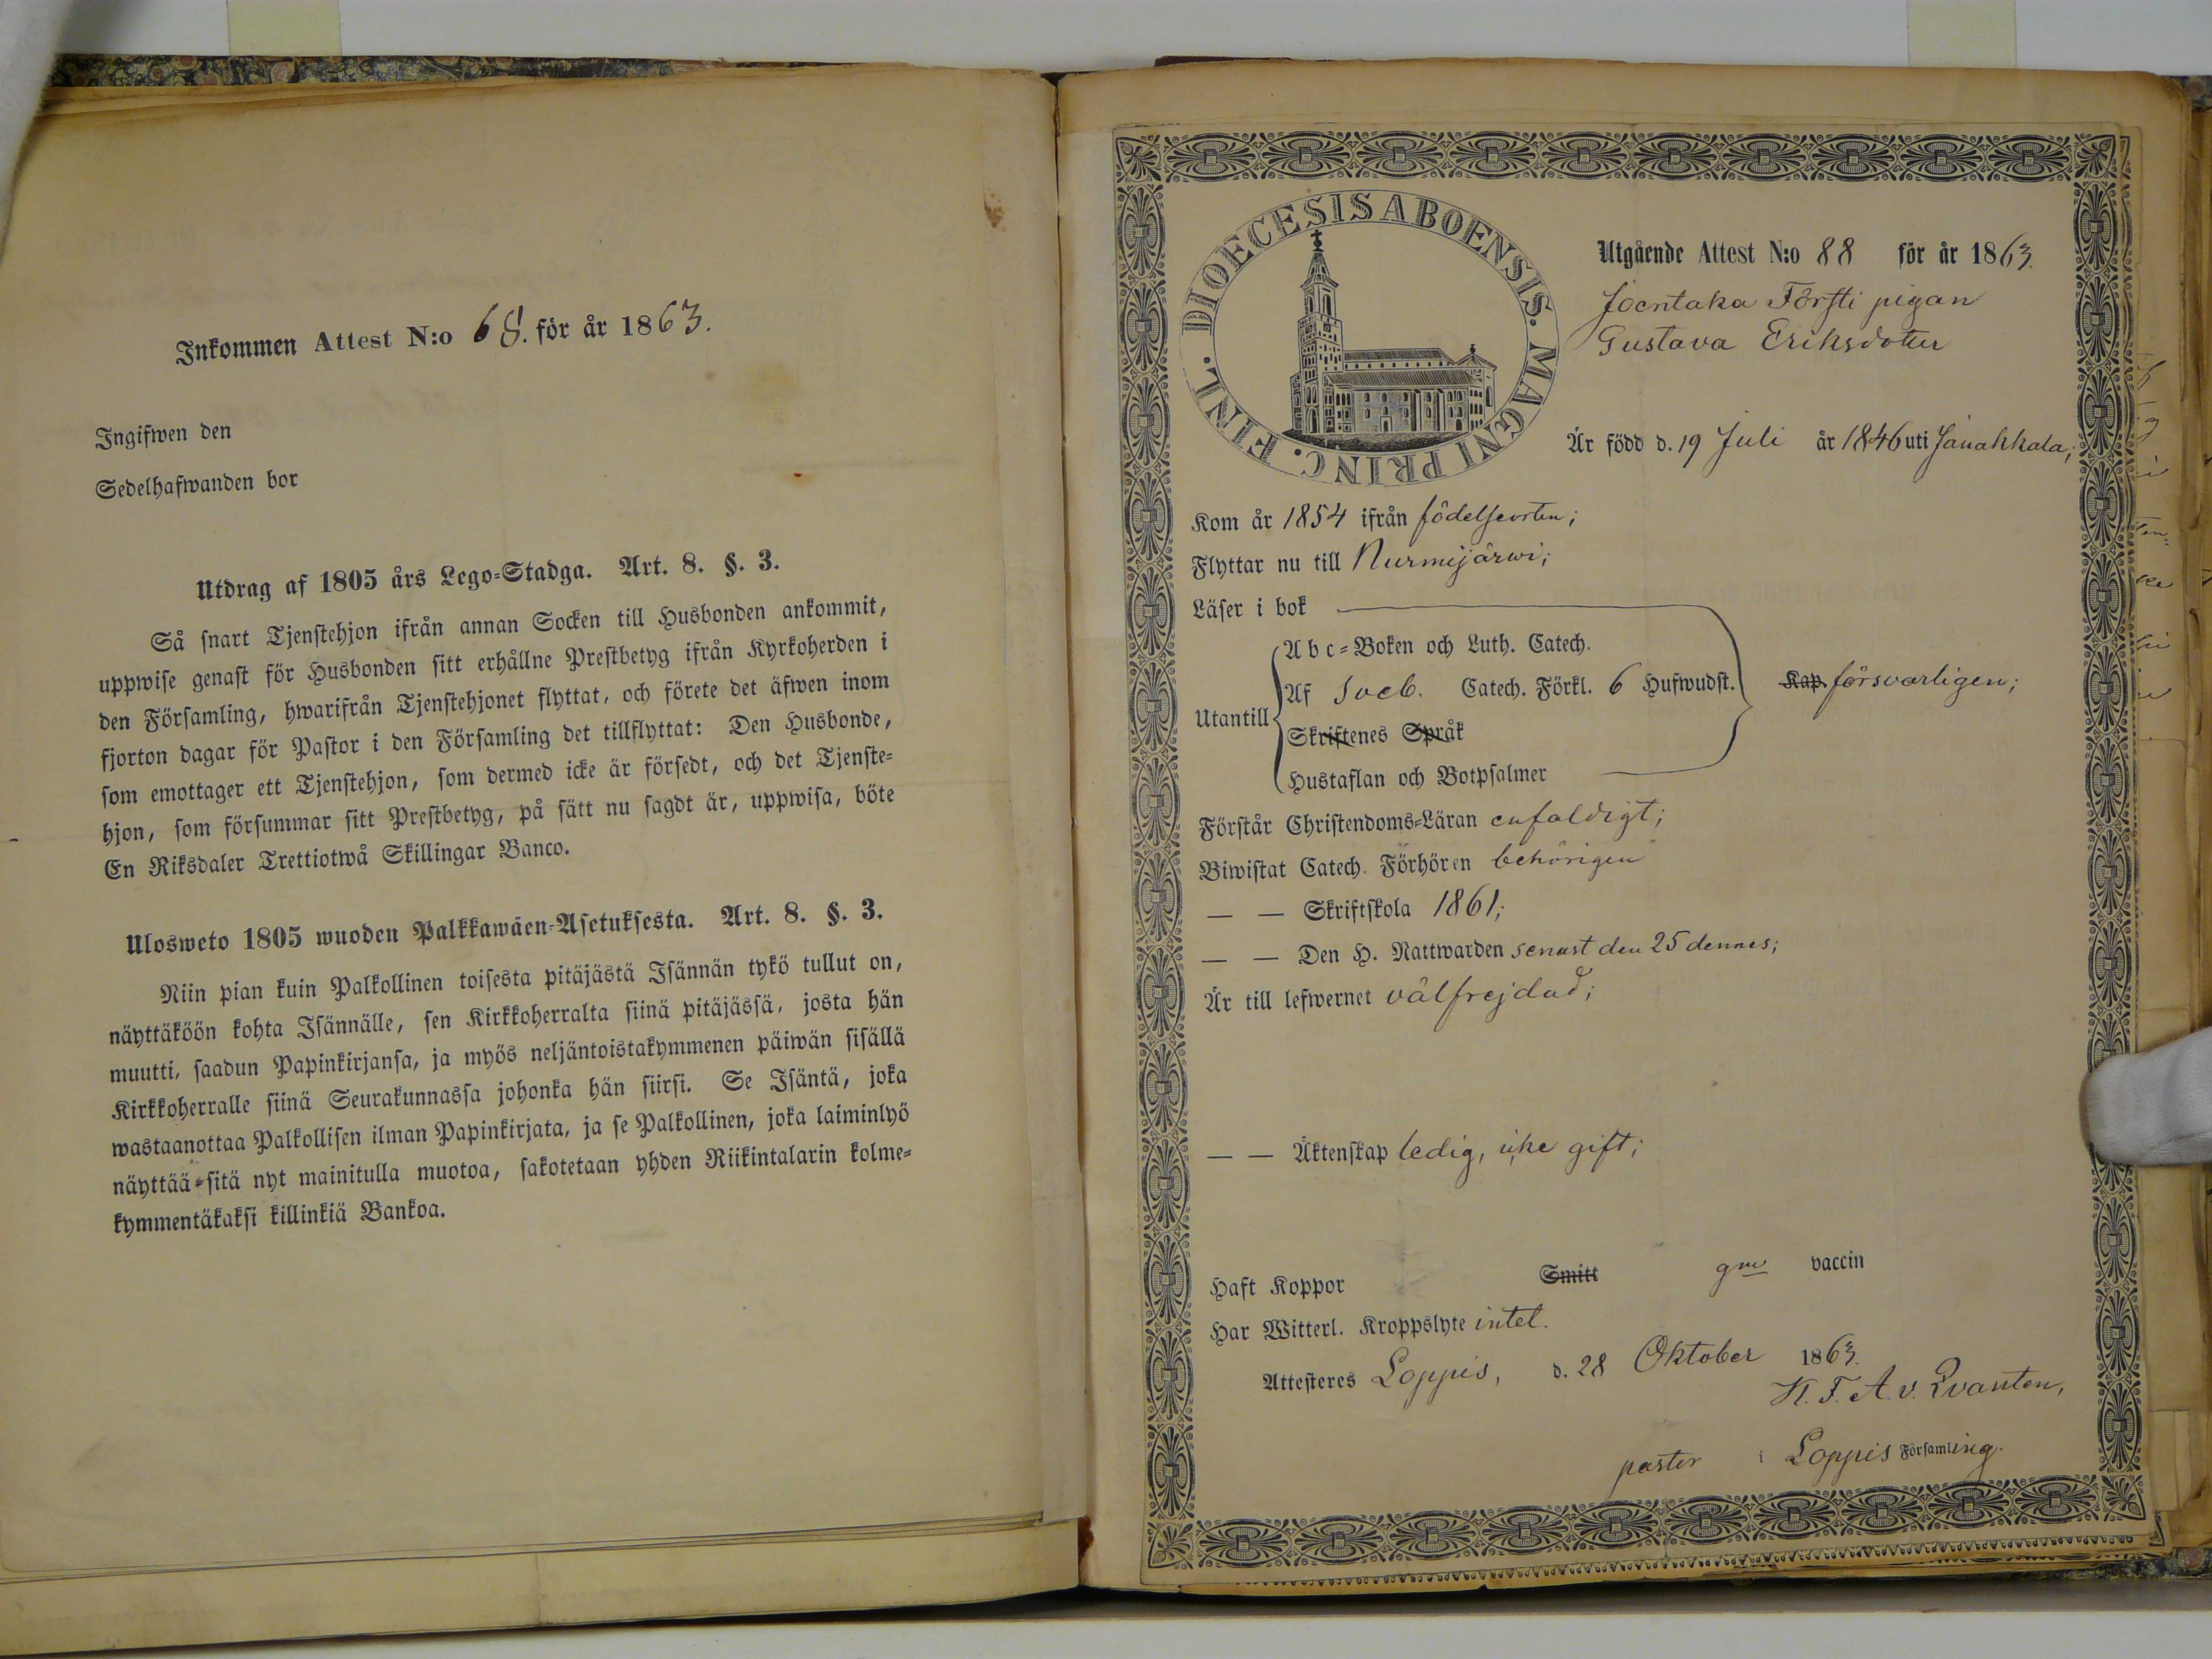 Inkommen Attest N:o 68. för år 1863.
Ingifwen den
Sedelhafwanden bor
Utdrag af 1805 års Lego-Stadga. Art. 8. §. 3.
Så snart Tjenstehjon ifrån annan Socken till Husbonden ankommit,
uppwise genast för Husbonden sitt erhållne Prestbetyg ifrån Kyrkoherden i
den Församling, hwarifrån Tjenstehjonet flyttat, och förete det äfwen inom
fjorton dagar för Pastor i den Församling det tillflyttat: Den Husbonde,
som emottager ett Tjenstehjon, som dermed icke är försedt, och det Tjenste-
hjon, som försummar sitt Prestbetyg, på sätt nu sagdt är, uppwisa, böte
En Riksdaler Trettiotwå Skillingar Banco.
Ulosweto 1805 wuoden Palkkawäen-Asetuksesta. Art. 8. §. 3.
Niin pian kuin Palkollinen toisesta pitäjästä Isännän tykö tullut on,
näyttäköön kohta Isännälle, sen Kirkkoherralta siinä pitäjässä, josta hän
muutti, saadun Papinkirjansa, ja myös neljäntoistakymmenen päiwän sisällä
Kirkkoherralle siinä Seurakunnassa johonka hän siirsi. Se Isäntä, joka
wastaanottaa Palkollisen ilman Papinkirjata, ja se Palkollinen, joka laiminlyö
näyttää sitä nyt mainitulla muotoa, sakotetaan yhden Riikintalarin kolme-
kymmentäkaksi killinkiä Bankoa.
DIOECESIS ABOENSIS. MAGNI PRINC. FINL.
Utgående Attest N:o 88 för år 1863.
Joentaka Förssti pigan
Gustava Eriksdotter
Är född d. 19 Juli år 1846 uti Janakkala,
Kom år 1854 ifrån födelseorten;
Flyttar nu till Nurmijärwi;
Läser i bok
Utantill
Abc-Boken och Luth. Catech.
Af Sveb. Catech. Förkl. 6 Hufwudst.
Skriftenes Språk
Hustaflan och Botpsalmer
Kap. försvarligen;
Förstår Christendoms-Läran enfaldigt;
Biwistat Catech. Förhören behörigen
— — Skriftskola 1861;
— — Den H. Nattwarden senast den 25 dennes;
Är till lefwernet välfrejdad;
— — Äktenskap ledig, icke gift;
Haft Koppor Smitt gm vaccin
Har Witterl. Kroppslyte intet.
Attesteres Loppis, d. 28 Oktober 1863.
K. F. A. v. Qvanten,
pastor i Loppis Församling.